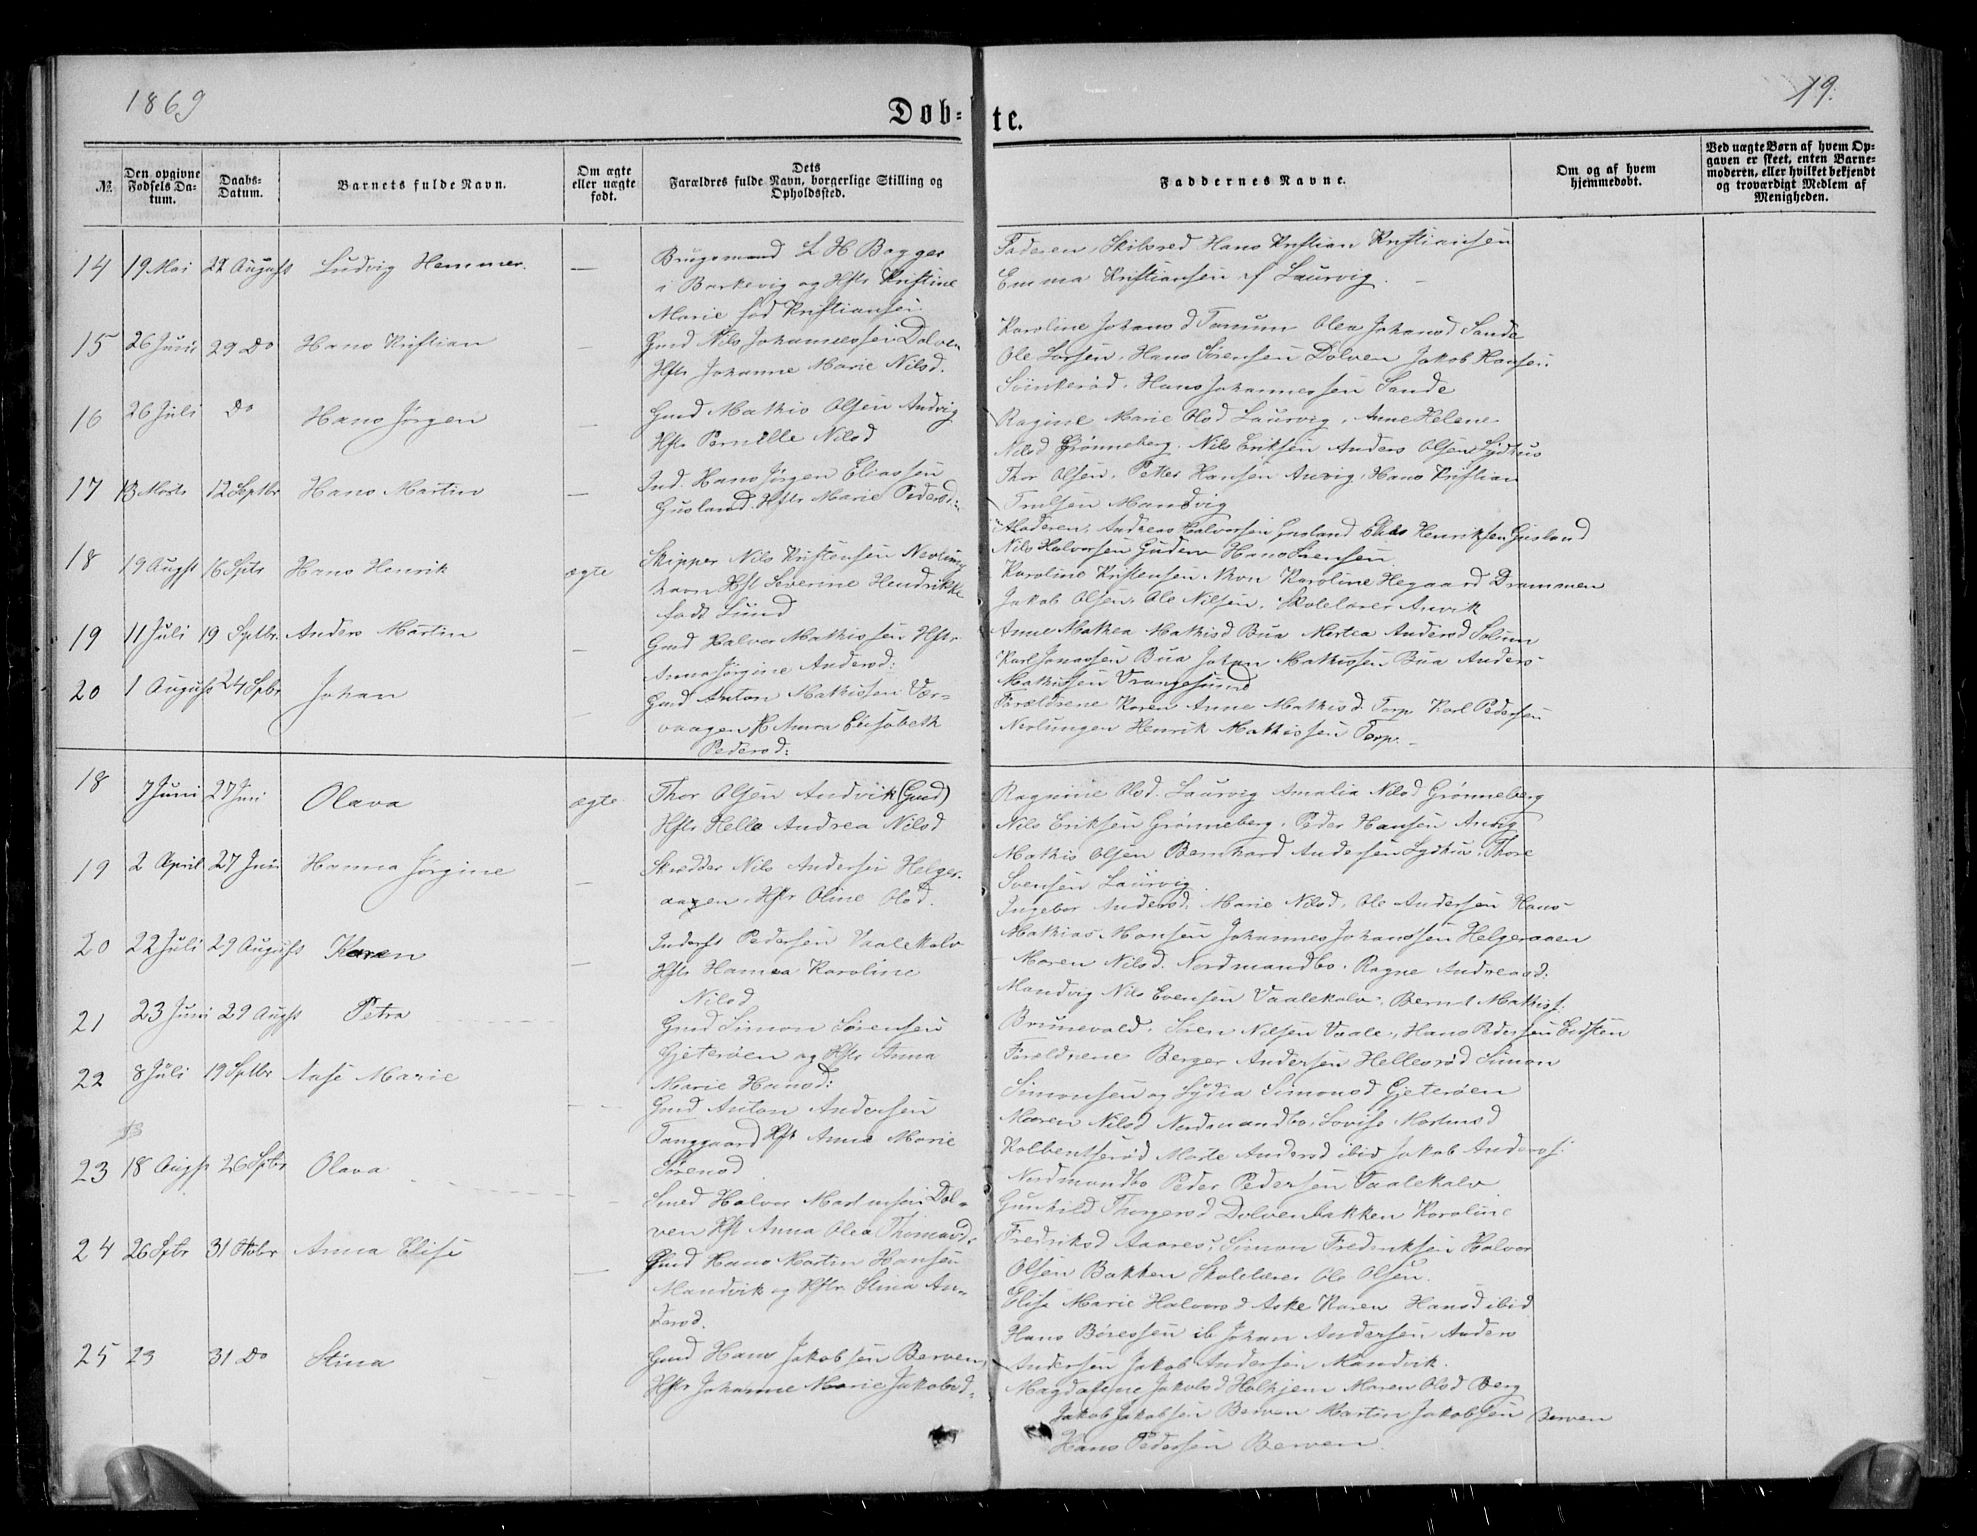 1869
Døb-
te.
19.
№
Den opgivne Fødsels Da-tum.
Daabs-Datum.
Barnets fulde Navn.
Om ægte eller uægte født.
Dets Forældres fulde Navn, borgerlige Stilling og Opholdssted.
Faddernes Navne.
Om og af hvem hjemmedøbt.
Ved uægte Børn af hvem Op-gaven er skeet, enten Barne-moderen, eller hvilket bekjendt og troværdigt Medlem af Menigheden.
14 19 Mai 22 August Ludvig Hemmer. —
Brugsmand L H Bagger
i Barkevig og Hstr Kristine
Marie fød Kristiansen.
Faderen, Skibsred Hans Kristian Kristiansen
Emma Kristiansen af Laurvig.
15 26 Juni 29 Do Hans Kristian —
Gmd Nils Johannessen Dolven
Hstr Johanne Marie Nilsd.
Karoline Johansd Tanum Olea Johansd Sande
Ole Larsen, Hans Sørensen Dolven Jakob Hansen
Svinkerød, Hans Johannessen Sande
16 26 Juli Do Hans Jørgen —
Gmd Mathis Olsen Andvig
Hstr Pernille Nilsd
Ragine Marie Olsd Laurvig, Anne Helene
Nilsd Grønneberg, Nils Eriksen Anders Olsen Lydhus
Thor Olsen, Petter Hansen Anvig, Hans Kristian
Trulsen Mandvig
17 13 Marts 12 Septbr Hans Martin —
Ind. Hans Jørgen Eliassen
Gusland. Hstr Marie Pedersd:
Faderen, Andreas Halvorsen Gusland Henriksen Gusland
Nils Halvorsen Hans Sørensen
18 19 Augst 16 Sptr Hans Henrik ægte
Skipper Nils Kristensen Nevlung
havn Hst Severine Hendrikke
født Lund
Karoline Kristensen, Karoline Hegaard Drammen
Jakob Olsen, Ole Nilsen, Skolelærer Anvik
19 11 Juli 19 Sptbr. Anders Martin —
Gmd Halvor Mathissen Hstr
Anna Jørgine Andersd:
Anne Mathea Mathisd Bua Martea Andersd Solum
Karl Jonassen Bua Johan Mathissen Bua Anders
Mathissen Vrangesund
20 1 August 24 Sptbr Johan —
Gmd Anton Mathissen Vær-
vaagen H Anna Elisabeth
Pedersd:
Forældrene Karen Anne Mathisd. Torp Karl Pedersen
Nevlungen Henrik Mathissen Torp.
18 7 Juni 27 Juni Olava ægte
Thor Olsen Andvik (Gmd)
Hstr Helle Andrea Nilsd
Ragnine Olsd. Laurvig Amalia Nilsd Grønneberg
Nils Eriksen Grønneberg, Peder Hansen Anvig
Mathis Olsen Bernhard Andersen Lydhus, Thore
Svensen Laurvig
19 2 April 27 Juni Hanna Jørgine —
Skrædder Nils Andersen Helger-
aaen, Hstr Oline Olsd.
Ingebor Andersd, Marie Nilsd, Ole Andersen Hans
Mathias Monsen Johannes Johansen Helgeraaen
20 22 Juli 29 August Karen —
Inderst Pedersen Vaalekalv
Hstr Hanna Karoline
Nilsd
Maren Nilsd. Nordmandbo. Ragne Andreasd.
Mandvig Nils Evensen Vaalekalv, Bernt Mathis:
Brunevald. Søren Nilsen Vaale, Hans Pedersen Eidsten
21 23 Juni 29 Augst Petra
Gmd Simon Sørensen
Gjeterøen og Hstr Anna
Marie Hansd:
Forældrene Berger Andersen Hellesrød Simon
Simonsen og Lydia Simonsd Gjeterøen
22 8 Juli 19 Sptbr Aase Marie
Gmd Anton Andersen
Tanggaard Hst Anne Marie
Sørensd
Maren Nilsd Nordmandbo, Lovise Martinsd
Kolbentserød Marte Andersd ibid Jakob Anders:
Nordmandbo Peder Pedersen Vaalekalv
23 18 Augst 26 Sptbr Olava
Smed Halvor Martinsen Dol-
ven Hst Anna Olea Thomasd.
Gunhild Thorgersd Dolvenbakken Karoline
Fredriksd Aares, Simon Fredriksen Halvor
Olsen Bakken Skolelærer Ole Olsen.
24 26 Sptbr 31 Oktobr Anna Elise —
Gmd Hans Martin Hansen
Mandvik og Hstr Stina An-
dersd.
Elise Marie Halvorsd Aske Karen Hansd ibid
Hans Børessen ib Johan Andersen Anders
Andersen Jakob Andersen Mandvik.
25 23 31 Do Stina
Gmd Hans Jakobsen Berven,
Hstr Johanne Marie Jakobsd.
Magdalene Jakobsd Holkjem Maren Olsd Berg
Jakob Jakobsen Berven Martin Jakobsen Berven
Hans Pedersen Berven.